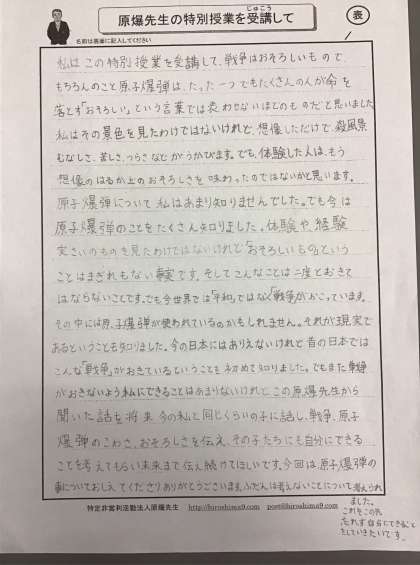 原爆先生の特別授業を受講して
じゅこう
表
名前は裏面に記入してください
私はこの特別授業を受講して、戦争はおそろしいもので、
もちろんのこと原子爆弾は、たった一つでもたくさんの人が命を
落とす「おそろしい」という言葉では表わせないほどのものだと思いました。
私はその景色を見たわけではないけれど、想像しただけで、殺風景
むなしさ、苦しさ、つらさなどがうかびます。でも、体験した人は、もう
想像のはるか上のおそろしさを味わったのではないかと思います。
原子爆弾について私はあまり知りませんでした。でも今は
原子爆弾のことをたくさん知りました。体験や、経験
実さいのものを見たわけではないけれど「おそろしいもの」という
ことはまぎれもない事実です。そしてこんなことは二度とおきて
はならないことです。でも今世界では「平和」ではなく「戦争」がおこっています。
その中には原子爆弾が使われているのかもしれません。それが現実で
あるということも知りました。今の日本にはありえないけれど昔の日本では
こんな「戦争」がおきているということを初めて知りました。でもまた戦争
がおきないよう私にできることはあまりないけれど、この原爆先生から
聞いた話を将来今の私と同じくらいの子に話し、戦争、原子
爆弾のこわさ、おそろしさを伝え、その子たちにも自分にできる
ことを考えてもらい未来まで伝え続けてほしいです。今回は原子爆弾の
事についておしえてくださりありがとうございます。ふだんは考えないことについて考えられ
ました。
これをこの先
忘れず自分にできること
をしていきたいです。
特定非営利活動法人原爆先生 http://hiroshima9.com post@hiroshima9.com